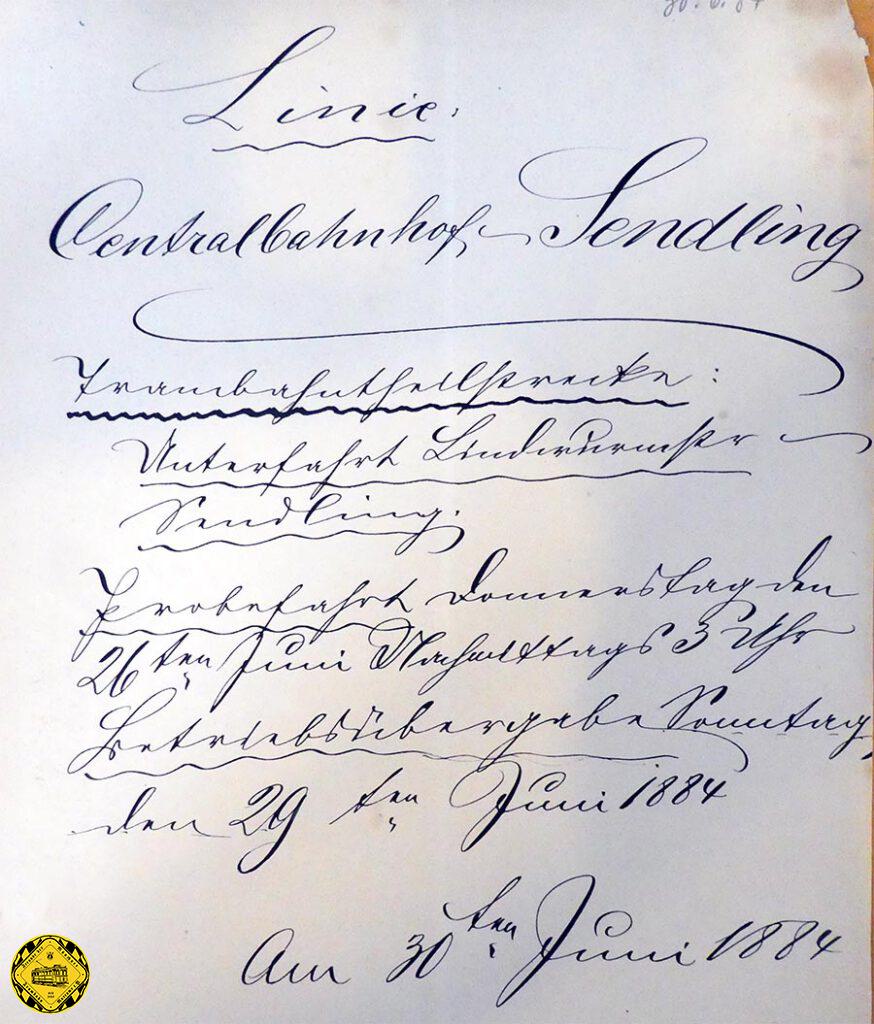 30.6.84
Linie:
Centralbahnhof - Sendling
Trambahntheilstrecke:
Unterfahrt Lindwurmstr -
Sendling.
Probefahrt Donnerstag den
26ten Juni Nachmittags 3 Uhr
Betriebsübergabe Sonntag,
den 29ten Juni 1884
Am 30ten Juni 1884